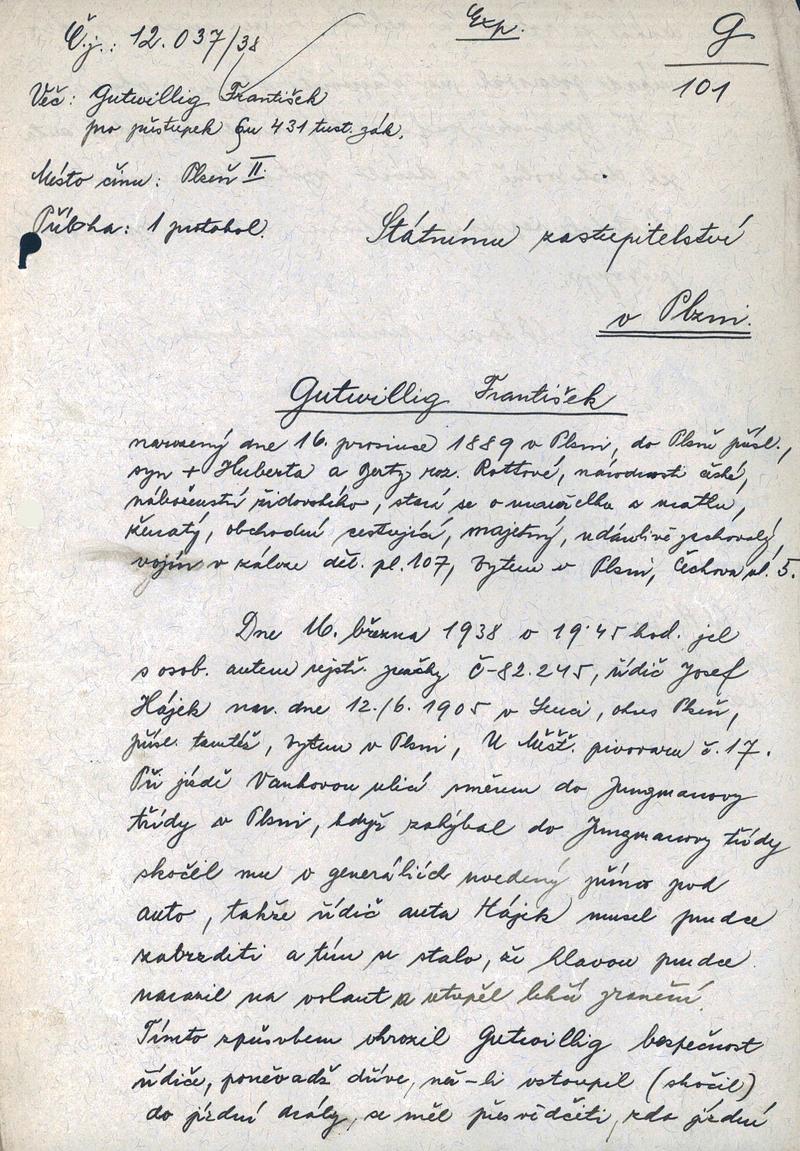 Č.j.: 12.037/38
Exp.
G
101
Věc: Gutwillig František
pro přestupek §u 431 trest. zák.
Místo činu: Plzeň II.
Příloha: 1 protokol.
Státnímu zastupitelství
v Plzni.
Gutwillig František
narozený dne 16. prosince 1889 v Plzni, do Plzně přísl.,
syn + Huberta a Berty roz. Rottové, národnosti české,
náboženství židovského, stará se o manželku a matku,
ženatý, obchodní cestující, majetný, udánlivě zachovalý,
vojín v záloze děl. pl. 107, bytem v Plzni, Čechova ul. 5.
Dne 16. března 1938 o 19·45 hod. jel
s osob. autem rejstř. značky Č-82.245, řidič Josef
Hájek nar. dne 12./6. 1905 v, okres Plzeň,
přísl. tamtéž, bytem v Plzni, U Měšť. pivovaru č. 17.
Při jízdě Vaňkovou ulicí směrem do Jungmanovy
třídy v Plzni, když zahýbal do Jungmanovy třídy
skočil mu v generáliích uvedený přímo pod
auto, takže řidič auta Hájek musel prudce
zabrzditi a tím se stalo, že hlavou prudce
narazil na volant a utrpěl lehčí zranění.
Tímto způsobem ohrozil Gutwillig bezpečnost
řidiče, poněvadž dříve, než-li vstoupil (skočil)
do jízdní dráhy, se měl přesvědčiti, zda jízdní